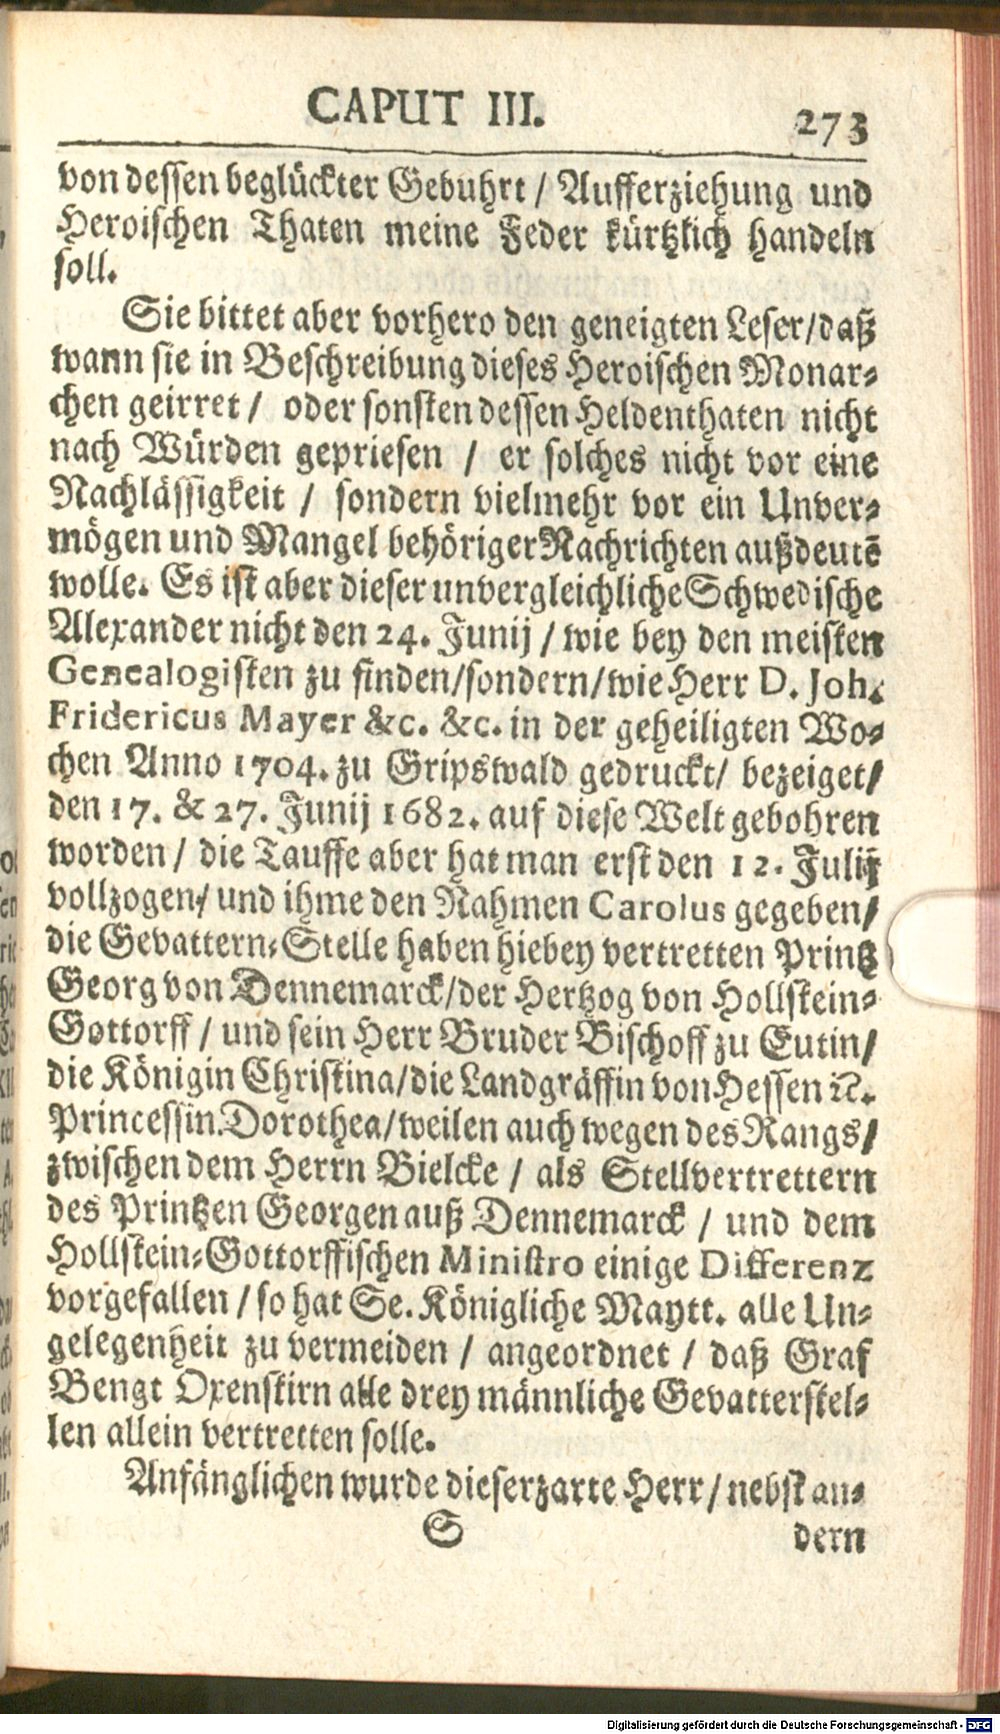 CAPUT III. 273
von dessen beglückter Gebuhrt / Aufferziehung und
Heroischen Thaten meine Feder kürtzlich handeln
soll.
Sie bittet aber vorhero den geneigten Leser/daß
wann sie in Beschreibung dieses Heroischen Monar-
chen geirret / oder sonsten dessen Heldenthaten nicht
nach Würden gepriesen / er solches nicht vor eine
Nachlässigkeit / sondern vielmehr vor ein Unver-
mögen und Mangel behöriger Nachrichten außdeutē
wolle. Es ist aber dieser unvergleichliche Schwedische
Alexander nicht den 24. Junij / wie bey den meisten
Genealogisten zu finden/sondern/wie Herr D. Joh.
Fridericus Mayer &c. &c. in der geheiligten Wo-
chen Anno 1704. zu Gripswald gedruckt/ bezeiget/
den 17. & 27. Junij 1682. auf diese Welt gebohren
worden / die Tauffe aber hat man erst den 12. Julij
vollzogen/ und ihme den Nahmen Carolus gegeben/
die Gevattern-Stelle haben hiebey vertretten Printz
Georg von Dennemarck/der Hertzog von Hollstein-
Gottorff / und sein Herr Bruder Bischoff zu Eutin/
die Königin Christina/die Landgräffin von Hessen ꝛc.
Princessin Dorothea/weilen auch wegen des Rangs/
zwischen dem Herrn Bielcke / als Stellvertrettern
des Printzen Georgen auß Dennemarck / und dem
Hollstein-Gottorffischen Ministro einige Differenz
vorgefallen / so hat Se. Königliche Maytt. alle Un-
gelegenheit zu vermeiden / angeordnet / daß Graf
Bengt Oxenstirn alle drey männliche Gevatterstel-
len allein vertretten solle.
Anfänglichen wurde dieser zarte Herr / nebst an-
S dern
Digitalisierung gefördert durch die Deutsche Forschungsgemeinschaft - DFG